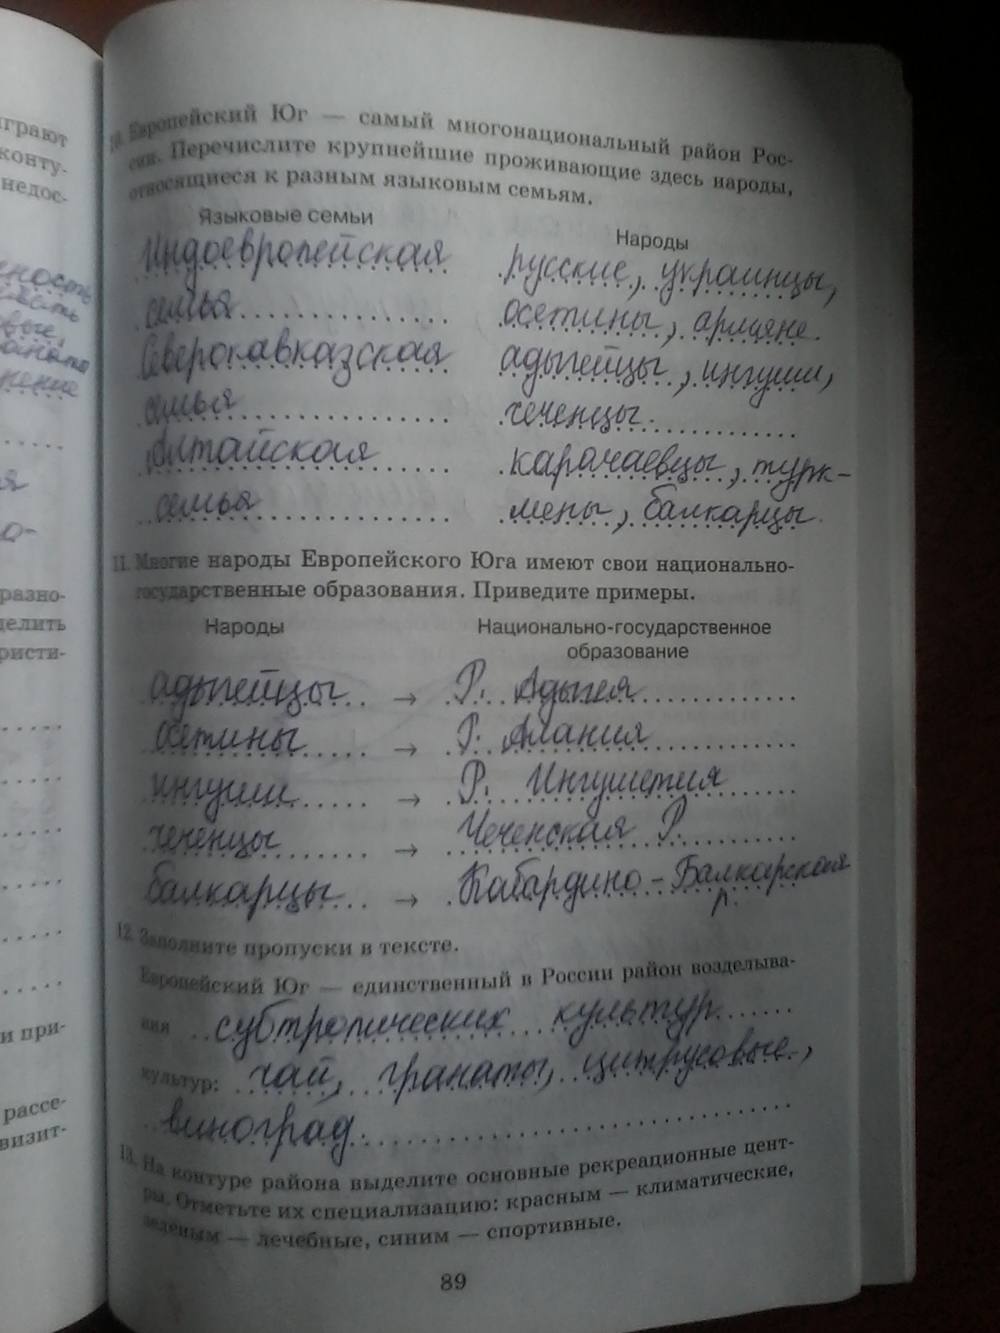 играют
конту-
недос-
ность
нение
разно-
делить
ристи-
и при-
рассе-
визит-
10. Европейский Юг — самый многонациональный район Рос-
сии. Перечислите крупнейшие проживающие здесь народы,
относящиеся к разным языковым семьям.
Языковые семьи Народы
Индоевропейская русские, украинцы,
семья осетины, армяне.
Северокавказская адыгейцы, ингуши,
семья чеченцы.
Алтайская карачаевцы, турк-
семья мены, балкарцы.
11. Многие народы Европейского Юга имеют свои национально-
государственные образования. Приведите примеры.
Народы Национально-государственное
образование
адыгейцы → Р. Адыгея
осетины → Р. Алания
ингуши → Р. Ингушетия
чеченцы → Чеченская Р.
балкарцы → Кабардино-Балкарская
р.
12. Заполните пропуски в тексте.
Европейский Юг — единственный в России район возделыва-
ния субтропических культур
культур: чай, гранаты, цитрусовые,
виноград.
13. На контуре района выделите основные рекреационные цент-
ры. Отметьте их специализацию: красным — климатические,
зеленым — лечебные, синим — спортивные.
89